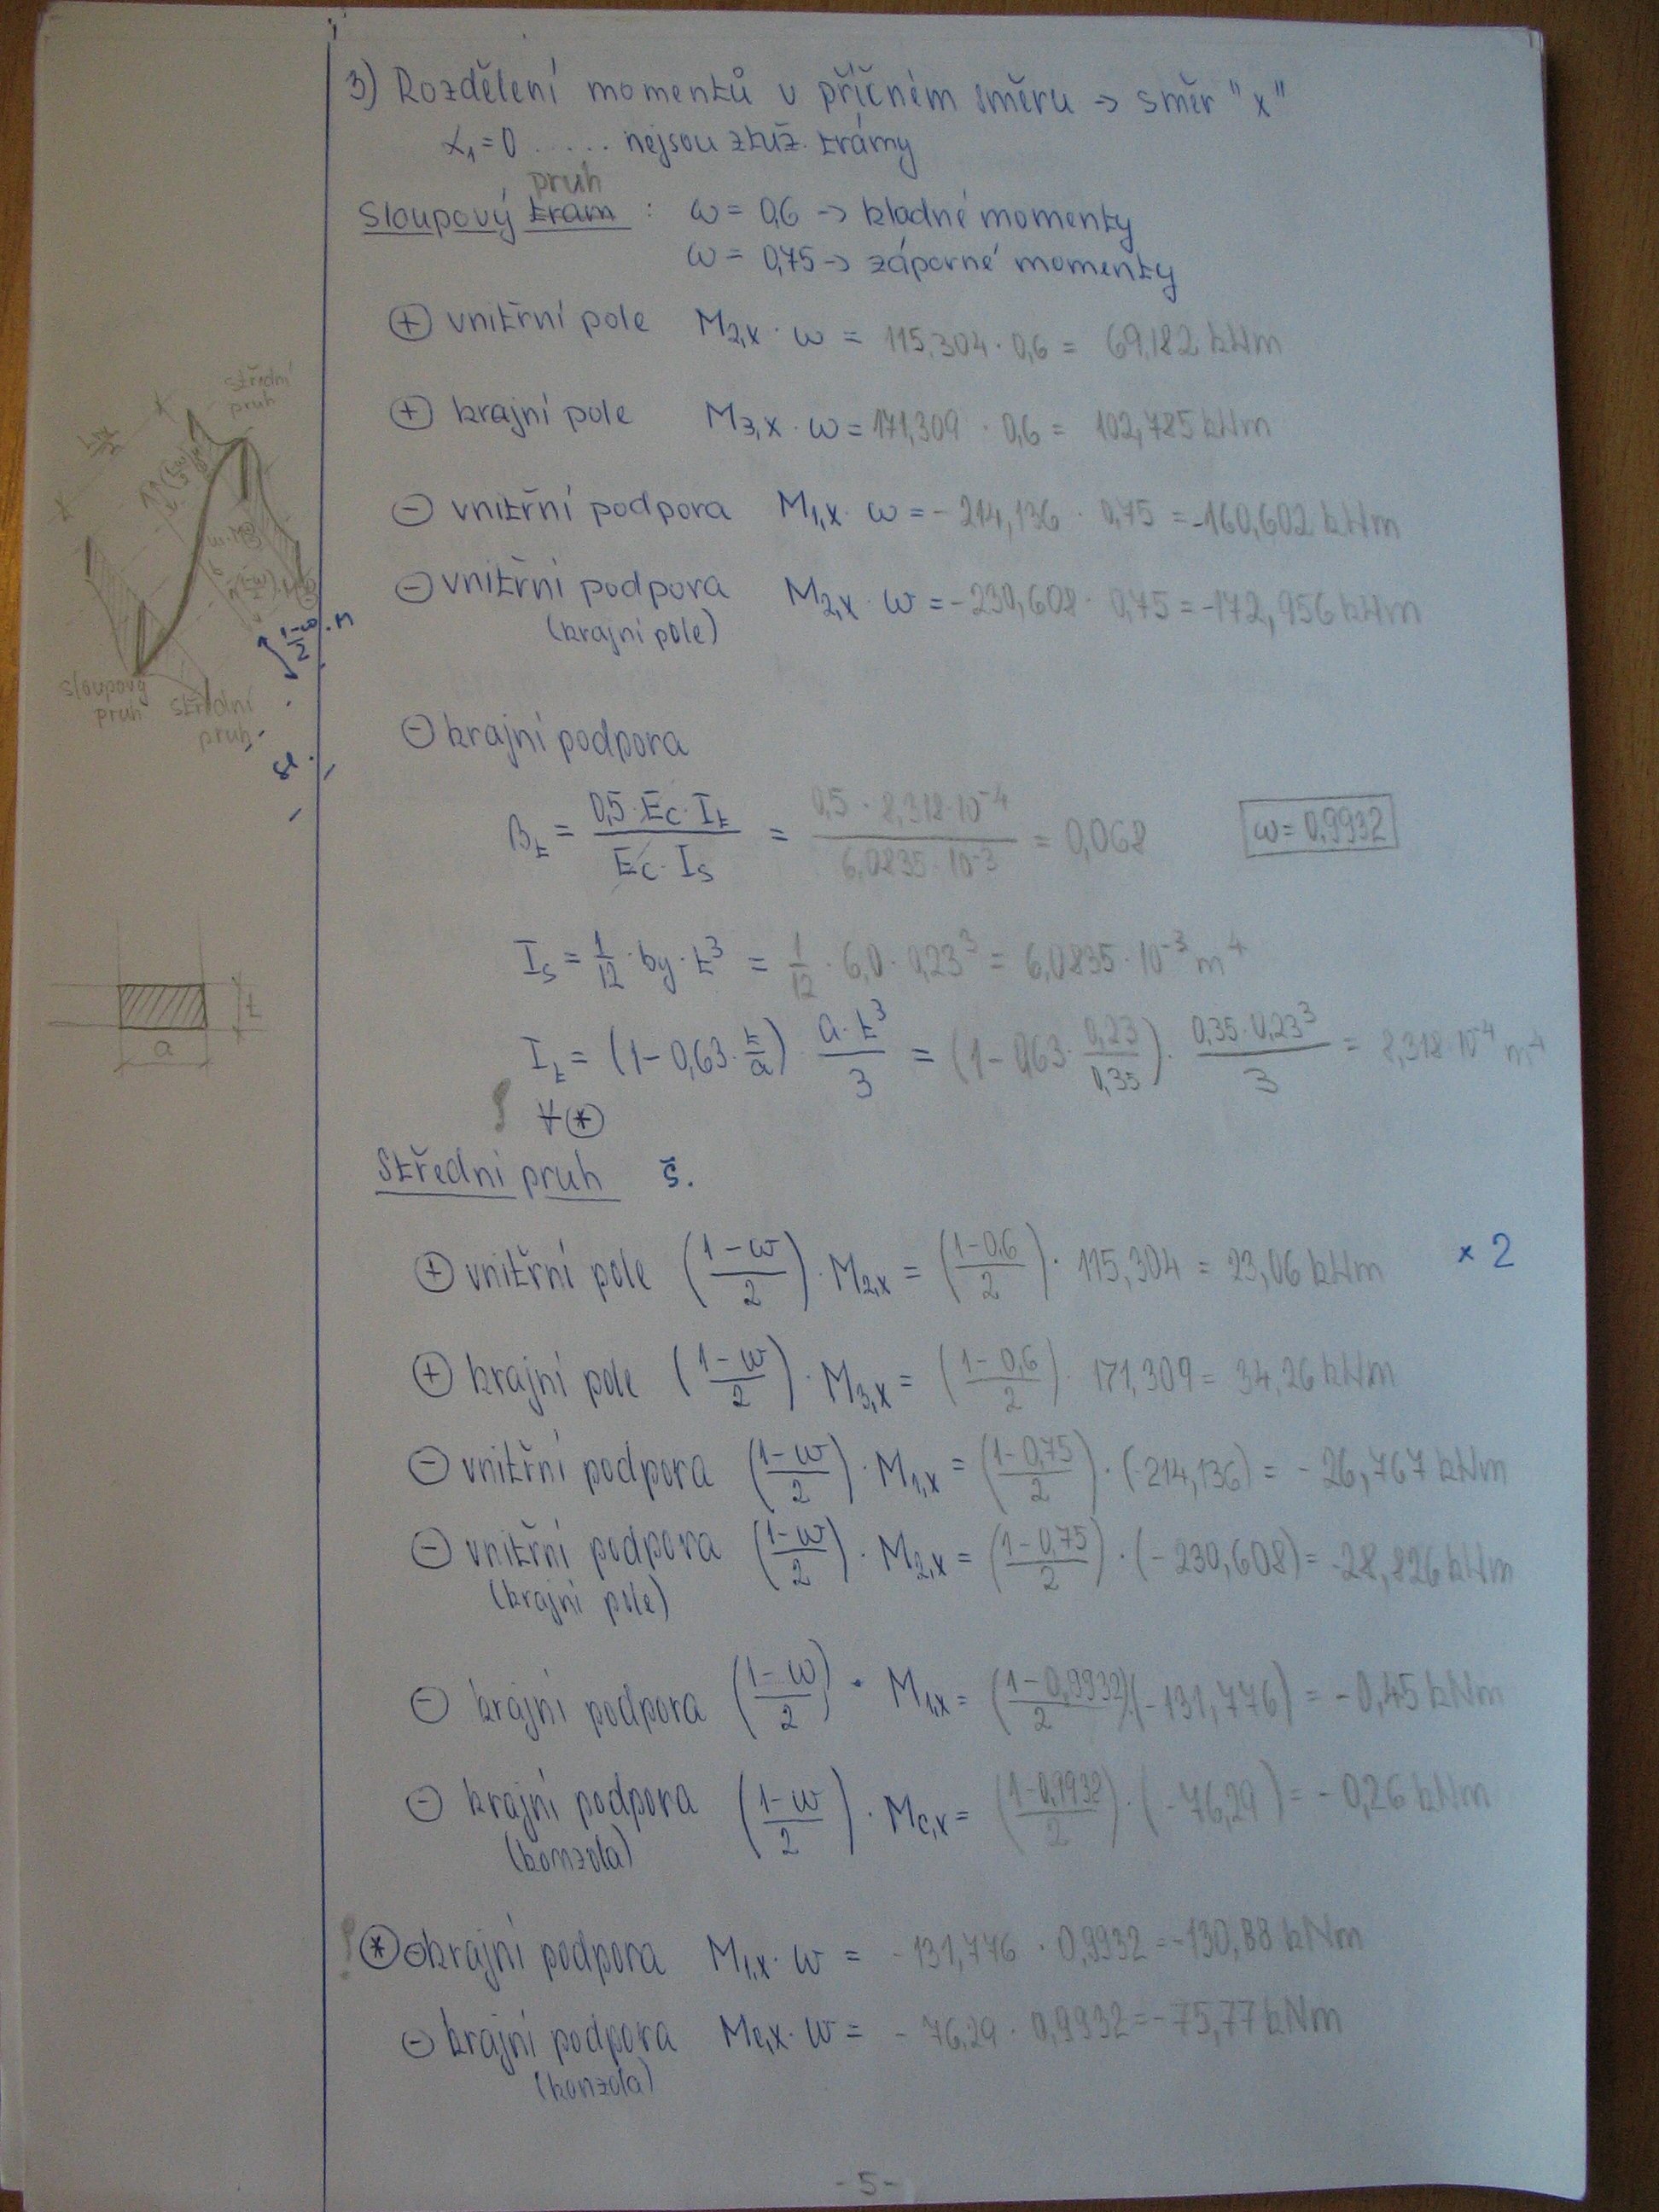 3) Rozdělení momentů v příčném směru → směr "x"
α₁=0 ..... nejsou ztuž. trámy
pruh
Sloupový tram : ω = 0,6 → kladné momenty
ω = 0,75 → záporné momenty
⊕ vnitřní pole M₂,ₓ · ω = 115,304 · 0,6 = 69,182 kNm
⊕ krajní pole M₃,ₓ · ω = 171,309 · 0,6 = 102,785 kNm
⊖ vnitřní podpora M₁,ₓ · ω = - 214,136 · 0,75 = -160,602 kNm
⊖ vnitřní podpora M₂,ₓ · ω = - 230,608 · 0,75 = -172,956 kNm
(krajní pole)
⊖ krajní podpora
βt = (0,5 · Ec · It)/(Ec · Is) = (0,5 · 8,318 · 10⁻⁴)/(6,0835 · 10⁻³) = 0,068 ω = 0,9932
Is = 1/12 · by · t³ = 1/12 · 6,0 · 0,23³ = 6,0835 · 10⁻³ m⁴
It = (1 - 0,63 · t/a) · (a · t³)/3 = (1 - 0,63 · 0,23/0,35) · (0,35 · 0,23³)/3 = 8,318 · 10⁻⁴ m⁴
∀ ⊛
Střední pruh š.
⊕ vnitřní pole ((1-ω)/2) · M₂,ₓ = ((1-0,6)/2) · 115,304 = 23,06 kNm × 2
⊕ krajní pole ((1-ω)/2) · M₃,ₓ = ((1-0,6)/2) · 171,309 = 34,26 kNm
⊖ vnitřní podpora ((1-ω)/2) · M₁,ₓ = ((1-0,75)/2) · (-214,136) = - 26,767 kNm
⊖ vnitřní podpora ((1-ω)/2) · M₂,ₓ = ((1-0,75)/2) · (-230,608) = -28,826 kNm
(krajní pole)
⊖ krajní podpora ((1-ω)/2) · M₁,ₓ = ((1-0,9932)/2) · (-131,776) = - 0,45 kNm
⊖ krajní podpora ((1-ω)/2) · Mc,x = ((1-0,9932)/2) · (-76,29) = - 0,26 kNm
(konzola)
⊛ ⊖ krajní podpora M₁,ₓ · ω = - 131,776 · 0,9932 = -130,88 kNm
⊖ krajní podpora Mc,x · ω = - 76,29 · 0,9932 = -75,77 kNm
(konzola)
- 5 -
střední
pruh
(1-ω)/2 · M
sloupový
pruh
střední
pruh
sl.
t
a